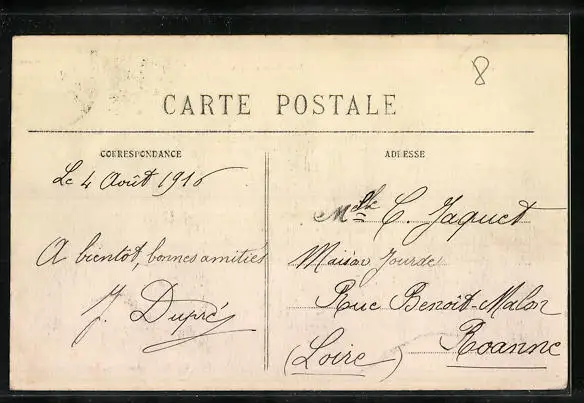 8
CARTE POSTALE
CORRESPONDANCE
Le 4 Août 1916
A bientôt, bonnes amitiés
J. Dupré
ADRESSE
Melle C. Jaquet
Maison Jourde
Rue Benoît-Malon
Roanne
(Loire)